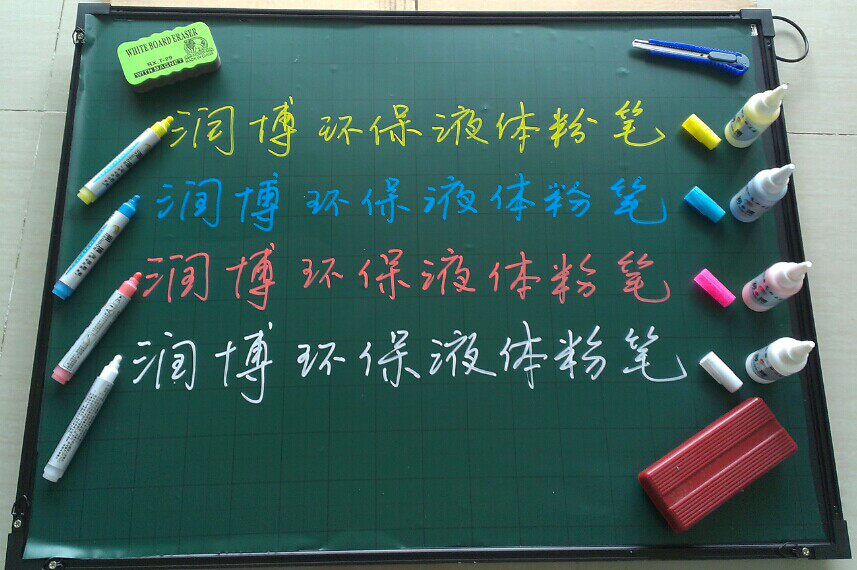 WHITE BOARD ERASER
RX T-29
WITH MAGNET
润博环保液体粉笔
润博环保液体粉笔
润博环保液体粉笔
润博环保液体粉笔